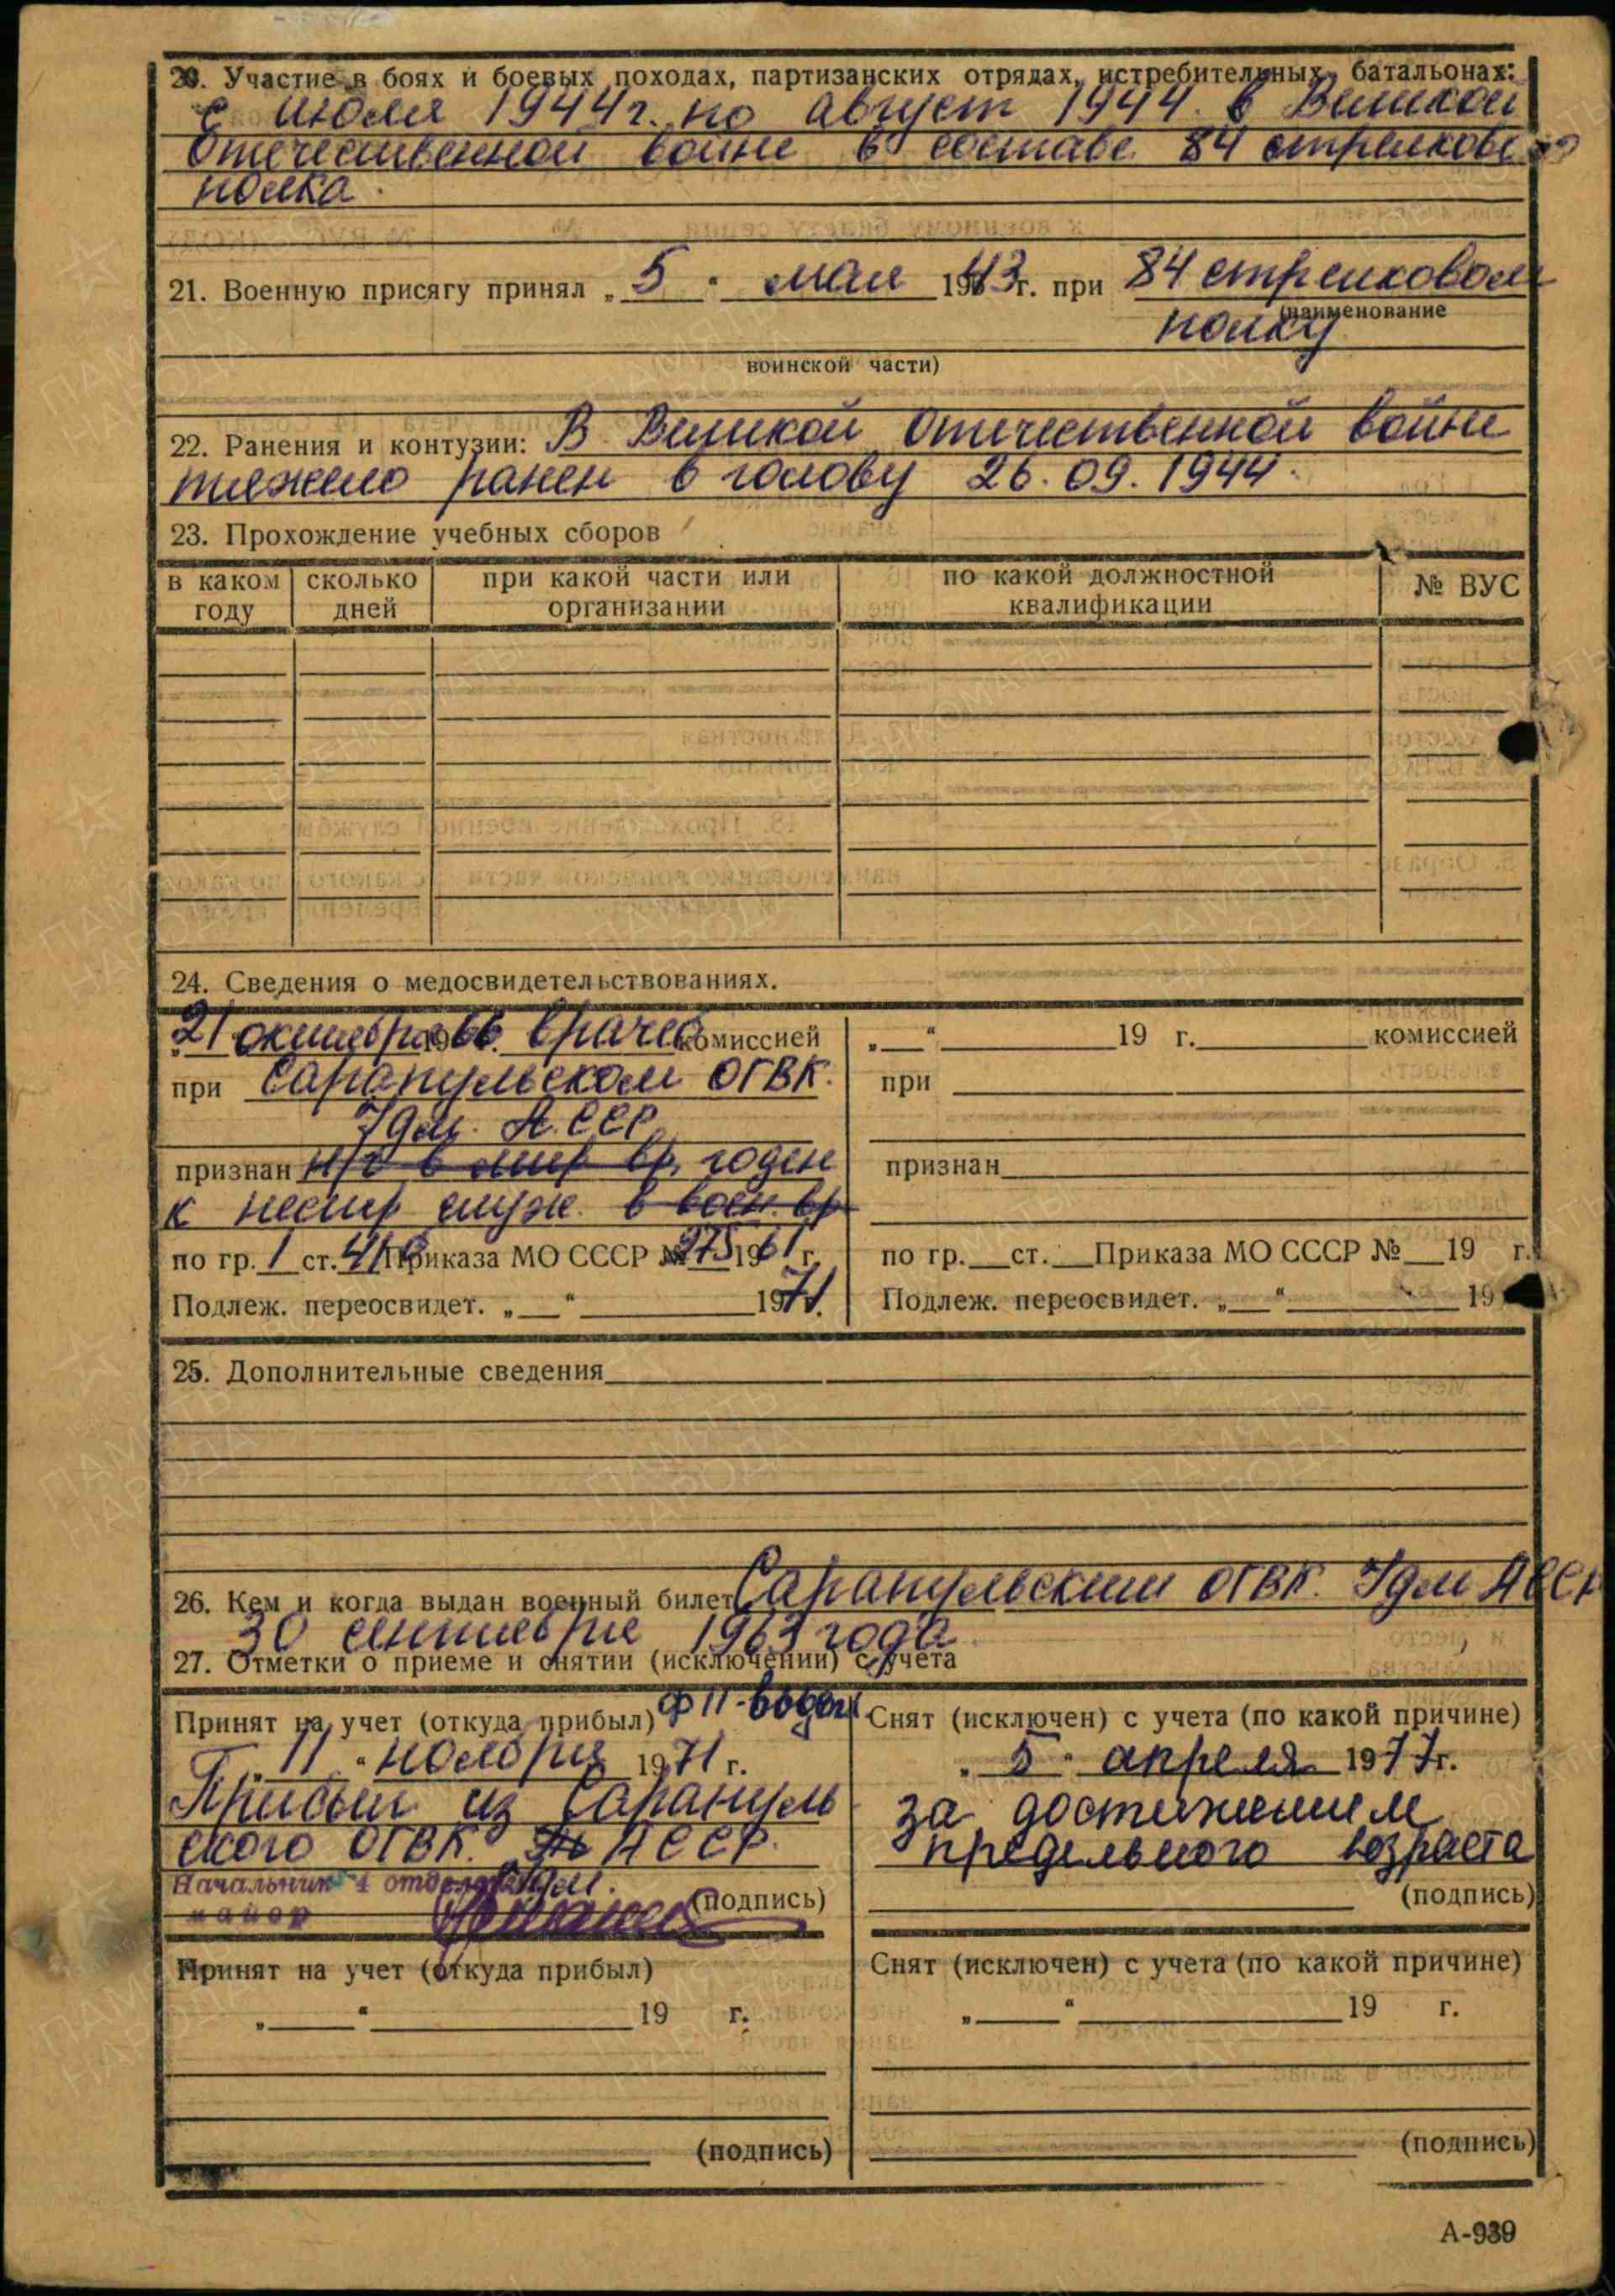 20. Участие в боях и боевых походах, партизанских отрядах, истребительных батальонах:
с июля 1944 г. по август 1944 в Великой
Отечественной войне в составе 84 стрелкового
полка.
21. Военную присягу принял „ 5 " мая 1943 г. при 84 стрелковом
(наименование
полку
воинской части)
22. Ранения и контузии: В Великой Отечественной войне
тяжело ранен в голову 26.09.1944.
23. Прохождение учебных сборов
в каком году | сколько дней | при какой части или организации | по какой должностной квалификации | № ВУС
24. Сведения о медосвидетельствованиях.
„21 октября 1966 врачеб комиссией
при Сарапульском ОГВК.
Удм. А.ССР
признан н/г в мир вр. годен
к нестр служ. в воен. вр
по гр. 1 ст. 41 Приказа МО СССР № 275 1961 г.
Подлеж. переосвидет. „__" 1971.
„__" 19 г. комиссией
при
признан
по гр.__ст.__Приказа МО СССР №__19 г.
Подлеж. переосвидет. „__" 19
25. Дополнительные сведения
26. Кем и когда выдан военный билет Сарапульским ОГВК. Удм АССР
30 сентября 1963 года
27. Отметки о приеме и снятии (исключении) с учета
Принят на учет (откуда прибыл)
„11" ноября 1971 г.
Прибыл из Сарапуль
ского ОГВК. АССР.
Удм.
Начальник 1 отделения
майор
(подпись)
Снят (исключен) с учета (по какой причине)
„ 5 " апреля 1977 г.
за достижением
предельного возраста
(подпись)
Принят на учет (откуда прибыл)
„__" 19 г.
(подпись)
Снят (исключен) с учета (по какой причине)
„__" 19 г.
(подпись)
А-939
ПАМЯТЬ НАРОДА